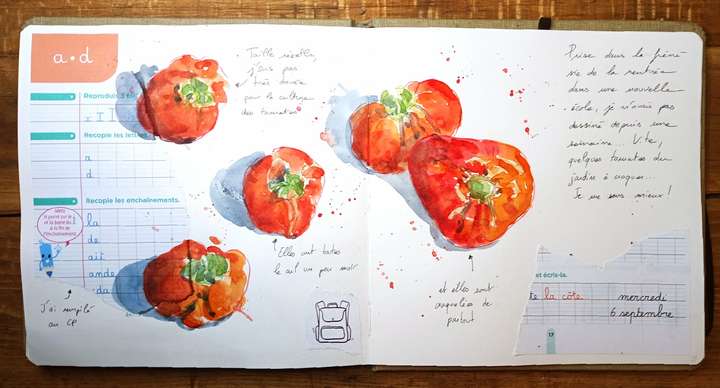 a • d
Reproduis
Recopie les lettres
a
d
Recopie les enchaînements.
la
de
ait
ande
da
J'ai rempilé
au CP
Taille réelle,
j'suis pas
très douée
pour la culture
des tomates
Elles ont toutes
le cul un peu noir
et elles sont
craquelées de
partout
Prise dans la frénésie de la rentrée
dans une nouvelle
école, je n'avais pas
dessiné depuis une
semaine... Vite,
quelques tomates du
jardin à croquer...
Je me sens mieux !
et écris-la.
te la côte.
mercredi
6 septembre
17